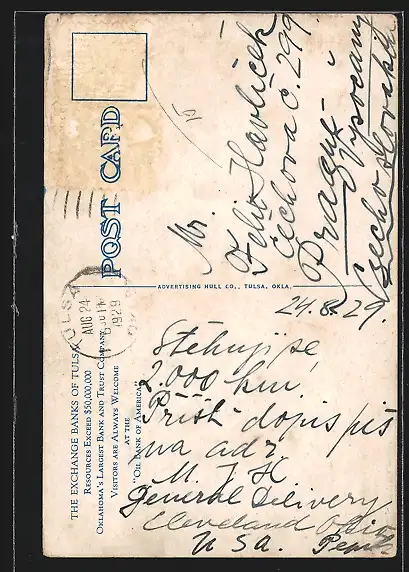 THE EXCHANGE BANKS OF TULSA
RESOURCES EXCEED $50,000,000
OKLAHOMA'S LARGEST BANK AND TRUST COMPANY
VISITORS ARE ALWAYS WELCOME
AT THE
"OIL BANK OF AMERICA"
POST CARD
TULSA
AUG 24
1929
ADVERTISING HULL CO., TULSA, OKLA.
15
Mr.
Felix Havlíček
Čechova č. 299
Prague -
Vysočany
Czecho Slovakia
24.8.29.
Stěhuji se
2.000 km,
Příšt dopis piš
na adr.
M. J. H.
General Delivery
Cleveland Ohio
U S A.